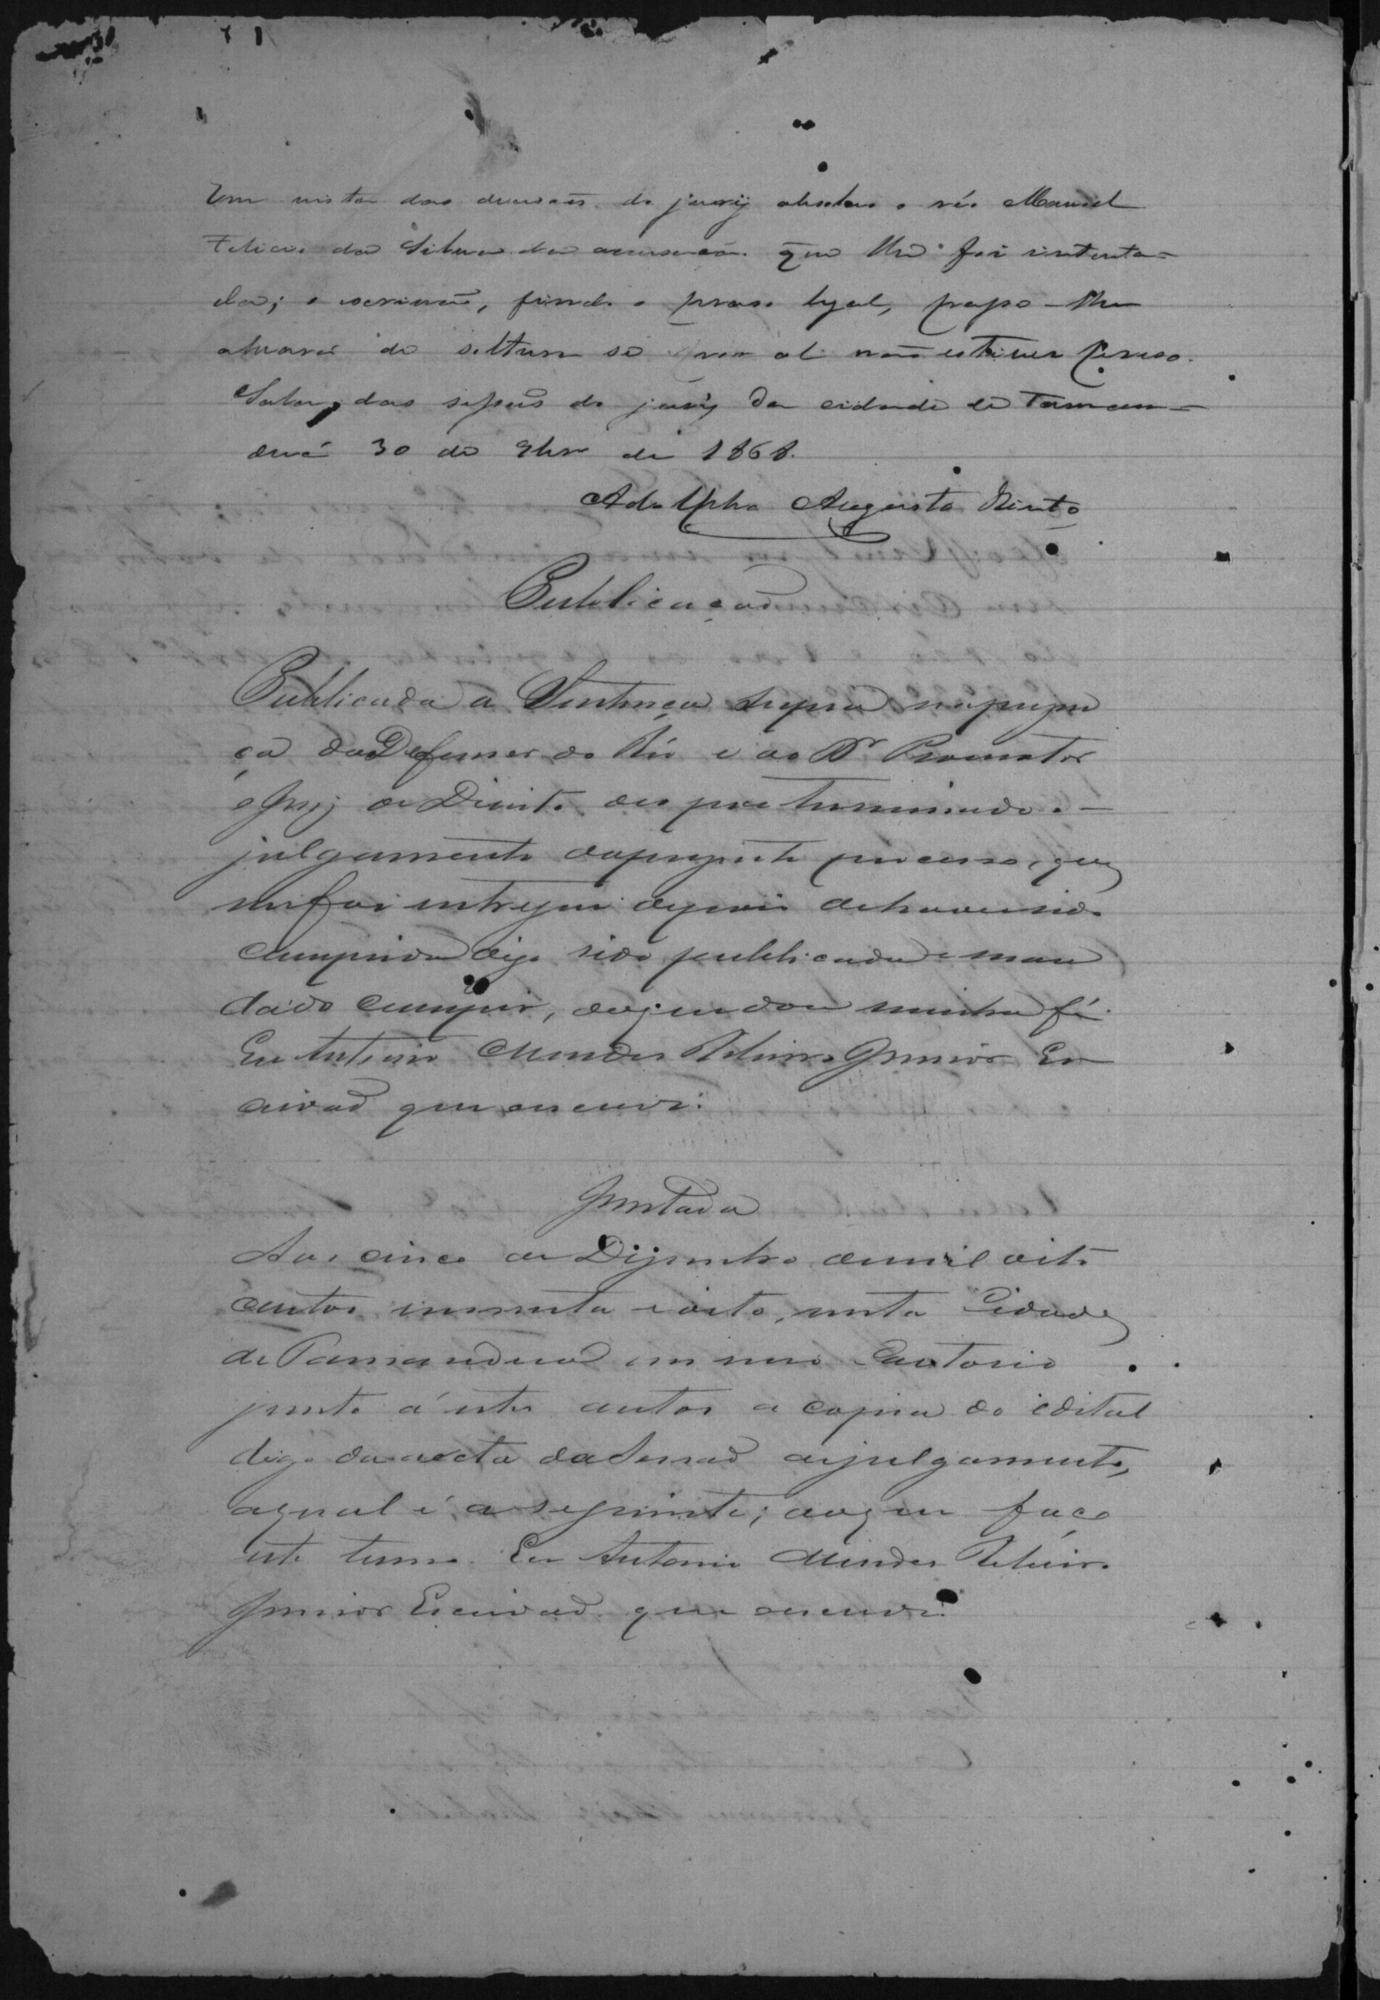 Em vista das decisões do jury absolvo o réo Manoel
Felicio da Silva da accusação que lhe foi intenta-
da; o escrivão, findo o praso legal, passe-lhe
alvará de soltura se por al não estiver preso.
Sala das sessões do jury da cidade de Taman-
duá 30 de 9bro de 1868.
Adolpho Augusto Pinto
Publicação
Publicada a Sentença supra na presen
ça do Defensor do Réo e ao Dr Promotor
e Juiz de Direito depois terminado o
julgamento do presente processo, que
me foi entregue depois de haver sido
cumprida digo sido publicada e man
dado cumprir, do que dou minha fé.
Eu Antonio Mendes Ribeiro Junior Es
crivaõ que escrevi.
Juntada
Aos cinco de Dezembro de mil oito
centos sessenta e oito, nesta Cidade
de Tamanduá em meu Cartorio
junto á estes autos a copia do edital
digo da acta da Sessaõ de julgamento,
a qual é a seguinte; do que faço
este termo. Eu Antonio Mendes Ribeiro
Junior Escrivaõ que escrevi.